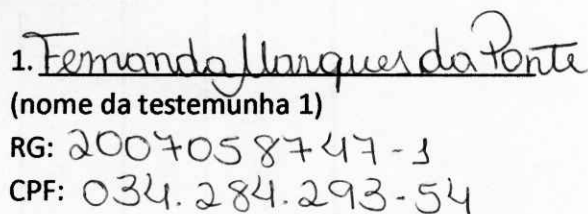 1. Fernanda Marques da Ponte
(nome da testemunha 1)
RG: 2007058747-1
CPF: 034.284.293-54